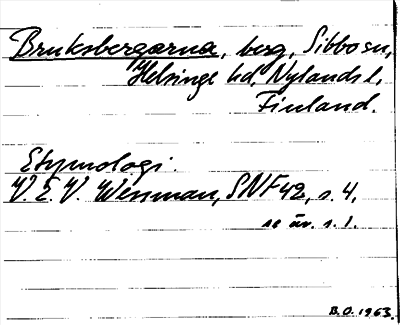 Bruksbergarna, berg, Sibbo sn,
Helsinge hd, Nylands l,
Finland.
Etymologi.
V. E. V. Wessman, SNF 42, s. 4,
se äv. s. 1.
B.O. 1963.